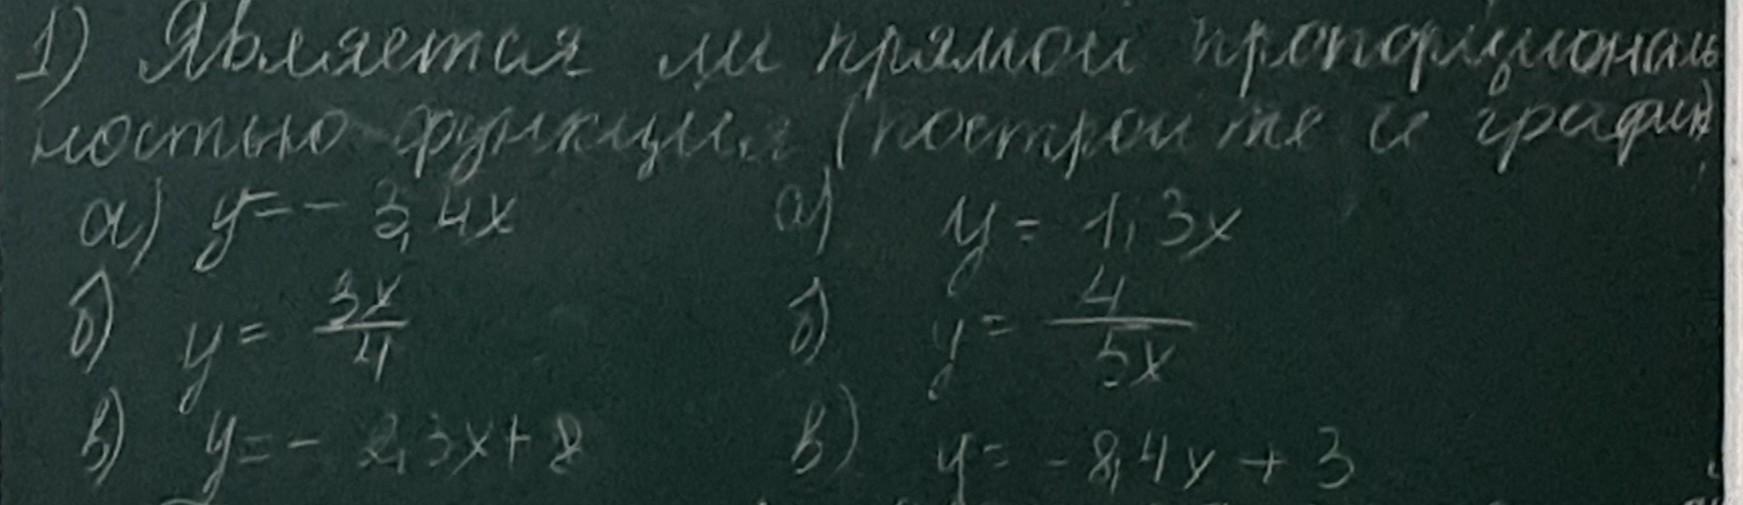 1) Является ли прямой пропорциональ
ностью функция (постройте и график)
а) y = - 3,4x а) y = 1,3x
б) y = 3x/4 б) y = 4/5x
в) y = - 2,3x + 8 в) y = -8,4x + 3